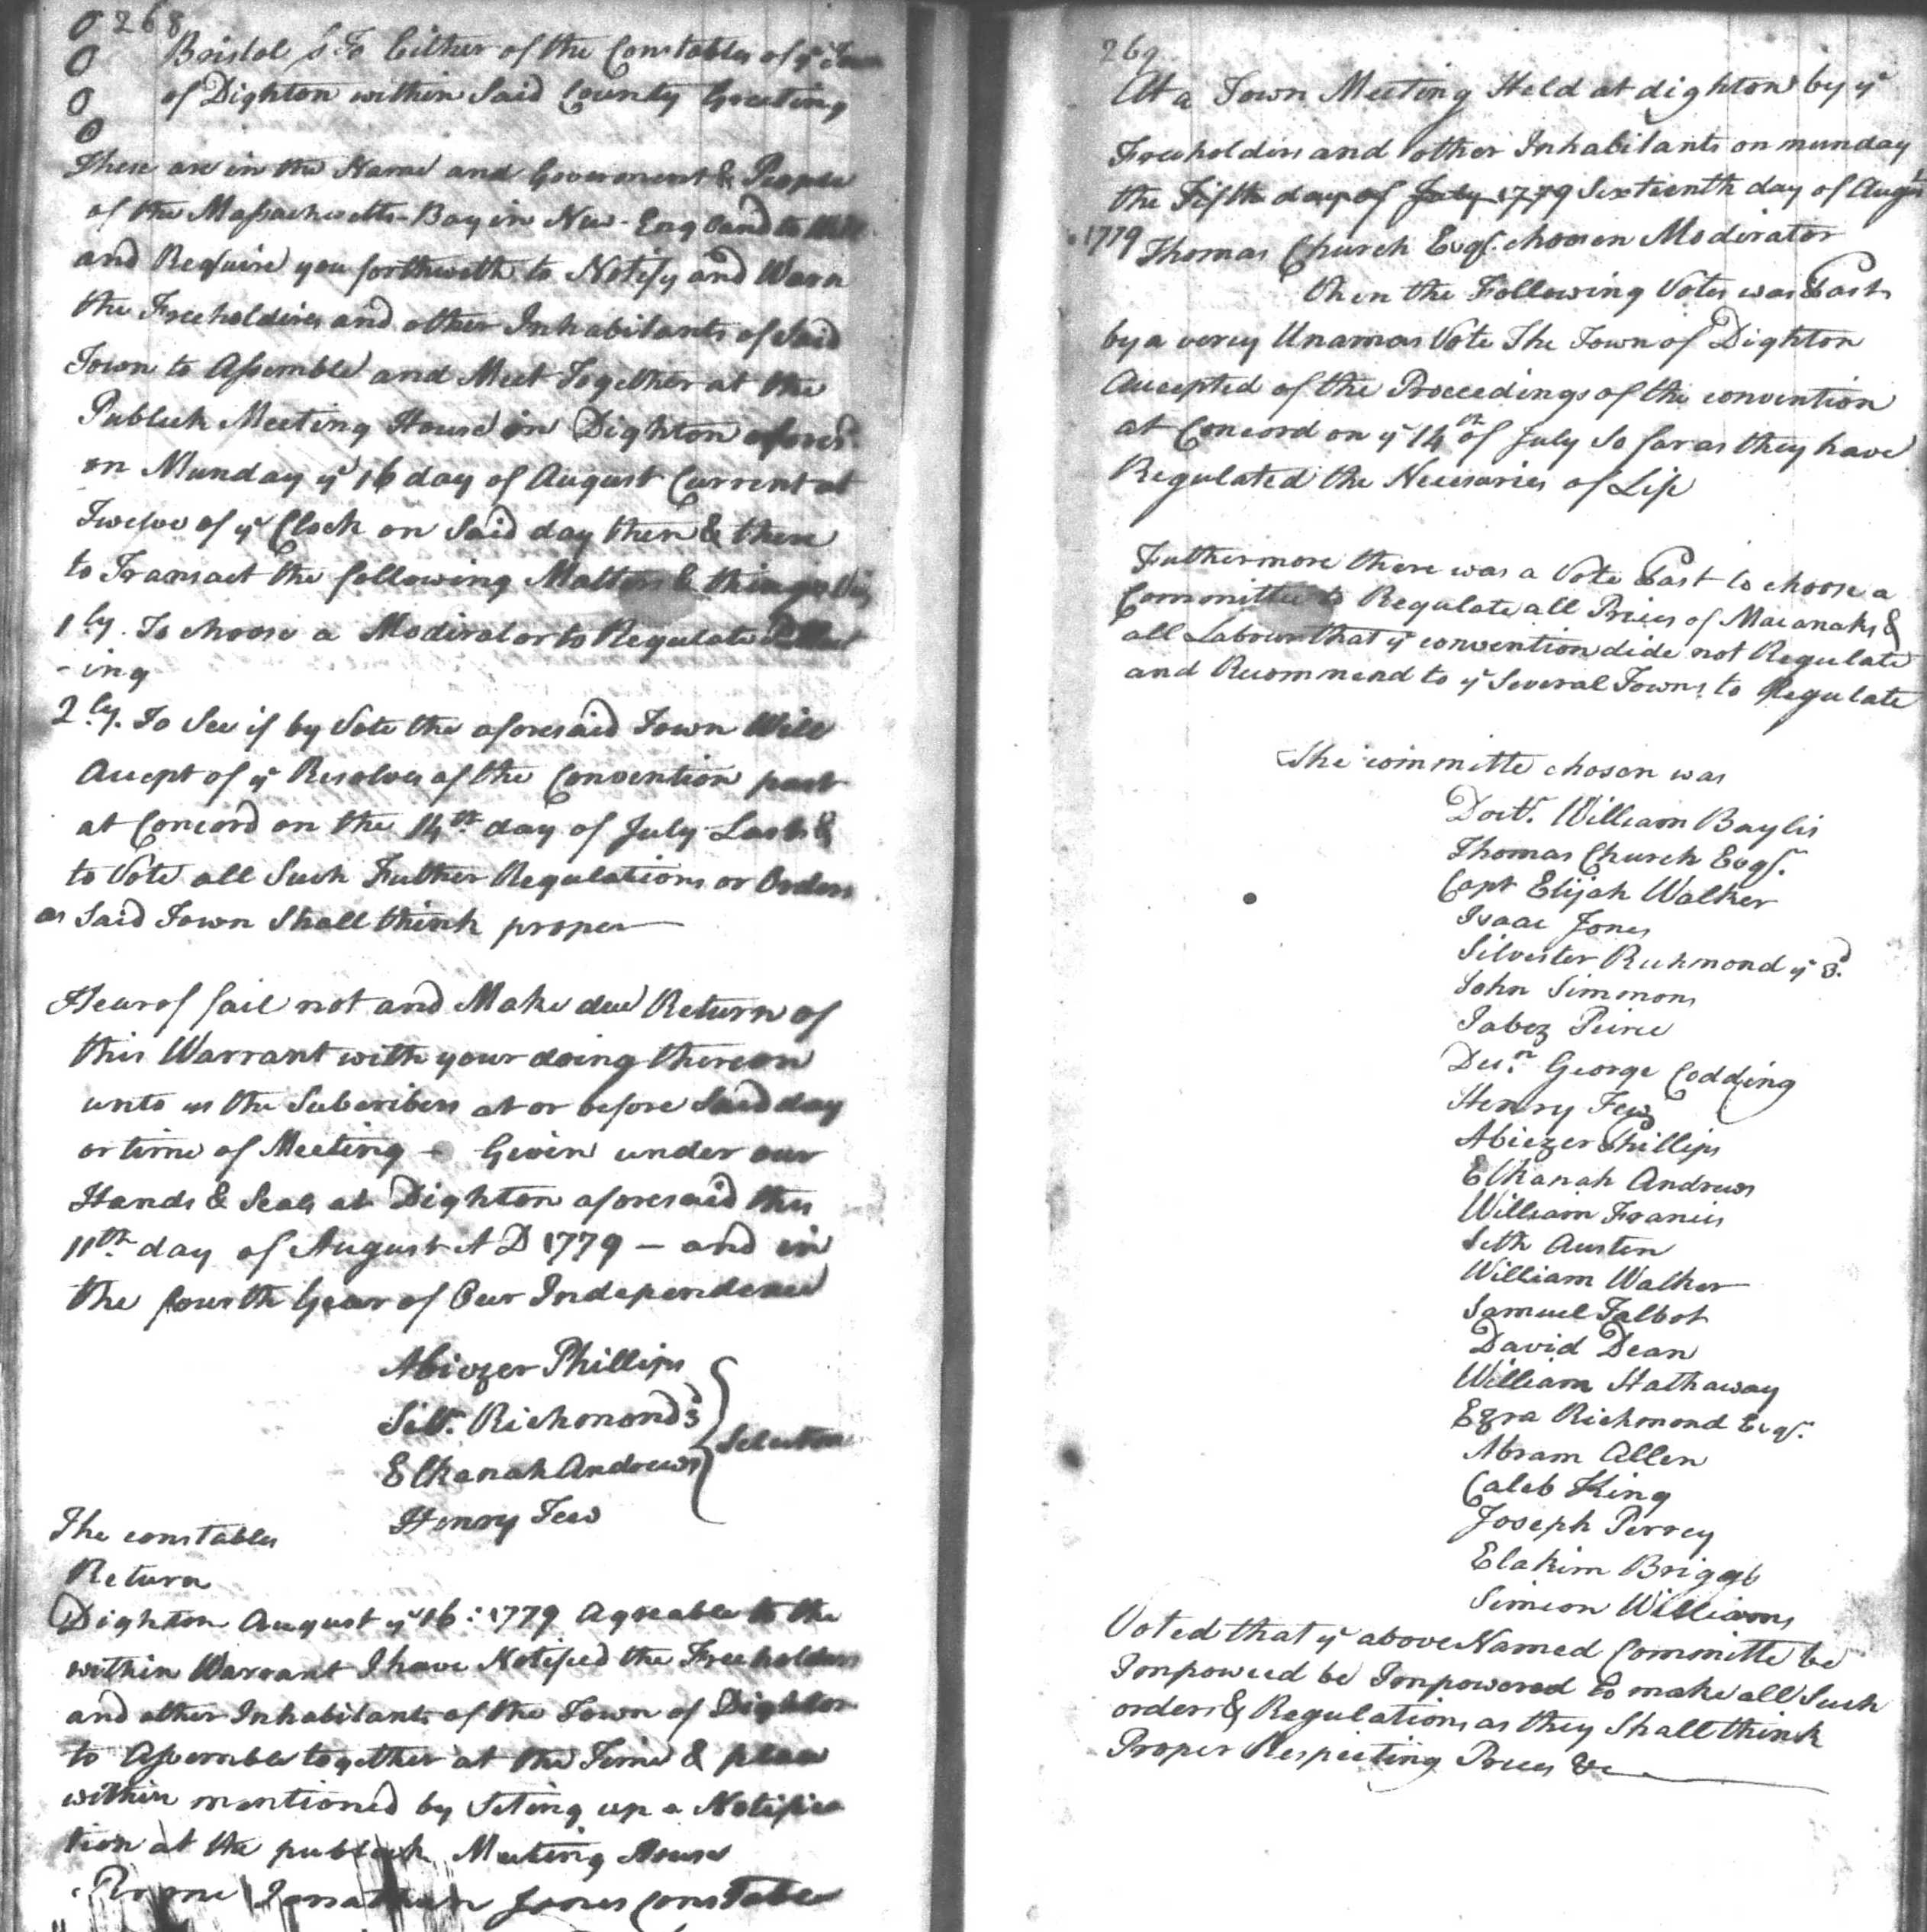 268
Bristol Ss To Either of the Constables of ye Town
of Dighton within Said County Greeting
These are in the Name and Goverment & People
of the Massachusetts-Bay in New-England to Will
and Require you forthwith to Notify and Warn
the Freeholders and other Inhabitants of Said
Town to Assemble and Meet Together at the
Publick Meeting House in Dighton afores.d
on Munday ye 16 day of August Current at
Twelve of ye Clock on Said day then & there
to Transact the following Matters & things Viz
1ly. To choose a Moderator to Regulate Meet
-ing
2ly. To See if by Vote the aforesaid Town Will
Accept of ye Resolves of the Convention past
at Concord on the 14th day of July Last &
to Vote all Such Futher Regulations or Orders
as Said Town Shall think proper
Hearof fail not and Make due Return of
this Warrant with your doing thereon
unto us the Subscribers at or before Said day
or time of Meeting - Given under our
Hands & Seals at Dighton aforesaid this
11th day of August A D 1779 - and in
the fourth Year of Our Independence
Abiezer Phillips
Silv.r Richmond 3d
Elkanah Andrews
Selectmen
Henry Few
The constables
Return
Dighton August ye 16: 1779 Agreable to the
within Warrant I have Notified the Freeholders
and other Inhabitants of the Town of Dighton
to Assemble together at the Time & place
within mentioned by Seting up a Notifica
tion at the publick Meeting House
Pr me Jonathan Jones Constable
269
At a Town Meeting Held at dighton by ye
Freeholders and other Inhabitants on munday
the Fifth day of July 1779 Sixteenth day of Augst
1779 Thomas Church Esqr. chosen Moderator
then the Following Votes was Past
by a verey Unamas Vote The Town of Dighton
Accepted of the Proceedings of the convention
at Concord on ye 14th of July So far as they have
Regulated the Necesaries of Life
Futhermore there was a Vote Past to choose a
Committee to Regulate all Prices of Macanaks &
all Labour that ye convention dide not Regulate
and Recommend to ye Several Towns to Regulate
The committe chosen was
Doct.r William Baylis
Thomas Church Esqr.
Capt Elijah Walker
Isaac Jones
Silvester Richmond ye 3.d
John Simmons
Jabez Peirce
Dea.n George Codding
Henry Few
Abiezer Phillips
Elkanah Andrews
William Francis
Seth Austen
William Walker
Samuel Talbot
David Dean
William Hathaway
Ezra Richmond Esqr.
Abram Allen
Caleb King
Joseph Perrey
Elakim Briggs
Simeon Williams
Voted that ye above Named Committe be
Impoweed be Impowered to make all Such
orders & Regulations as they Shall think
Proper Respecting Prices &c